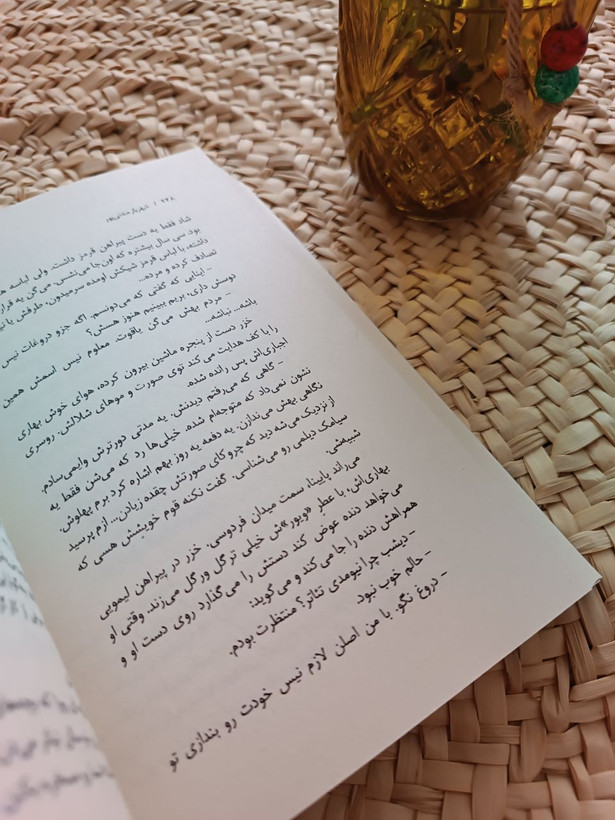 ۲۲۸ / شهریار مندنی‌پور
شاد فقط یه دست پیراهن قرمز داشته. ولی لباسه
بود سی سال بیشتره که اون‌جا می‌نشس. می‌گن یه قرار
داشته، با لباس قرمز شیکش اومده سرمیدون. طرفش یا
تصادف کرده و مرده...
- اینایی که گفتی که می‌دونسم. اگه جزو دروغات نیس
دوستش داری، بریم ببینیم هنوز هسش؟
- مردم بهش می‌گن یاقوت. معلوم نیس اسمش همین
باشه... نباشه...
خزر دست از پنجره ماشین بیرون کرده، هوای خوش بهاری
را با کف هدایت می‌کند توی صورت و موهای شلالش. روسری
اجباری‌اش پس رانده شده.
- گاهی که می‌رفتم دیدنش، یه مدتی دورترش وایمی‌سادم.
نشون نمی‌داد که متوجه‌ام شده. خیلی‌ها رد که می‌شن فقط یه
نگاهی بهش می‌ندازن. یه دفعه یه روز بهم اشاره کرد برم پهلوش.
از نزدیک می‌شه دید که چروکای صورتش چقده زیادن... ازم پرسید
سیامک دیلمی رو می‌شناسی. گفت نکنه قوم خویشش هسی که
شبیه‌شی.
می‌راند پایینا، سمت میدان فردوسی. خزر در پیراهن لیمویی
بهاری‌اش، با عطر «دیور»ش خیلی ترگل ورگل می‌زند. وقتی او
می‌خواهد دنده عوض کند دستش را می‌گذارد روی دست او و
همراهش دنده را جا می‌کند و می‌گوید:
- دیشب چرا نیومدی تئاتر؟ منتظرت بودم.
- حالم خوب نبود.
- دروغ نگو. با من اصلن لازم نیس خودت رو بندازی تو